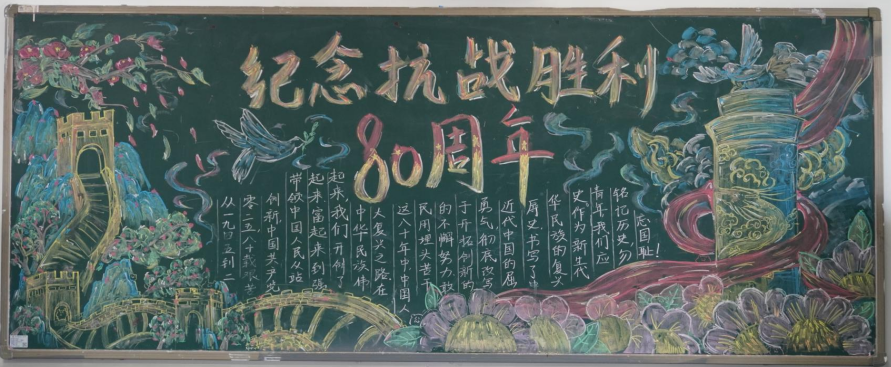 纪念抗战胜利
80周年
从一九四五到二
零二五,八十载艰苦
创新中国共产党
带领中国人民从站
起来富起来到强
起来,我们开创了
中华民族伟
大复兴之路在
这八十年中中国人
民用埋头苦干
的不懈努力敢
于开拓创新的
勇气,彻底改写
近代中国的屈
辱史,书写了中
华民族的复兴
史作为新生代
青年我们应
铭记历史勿
忘国耻!